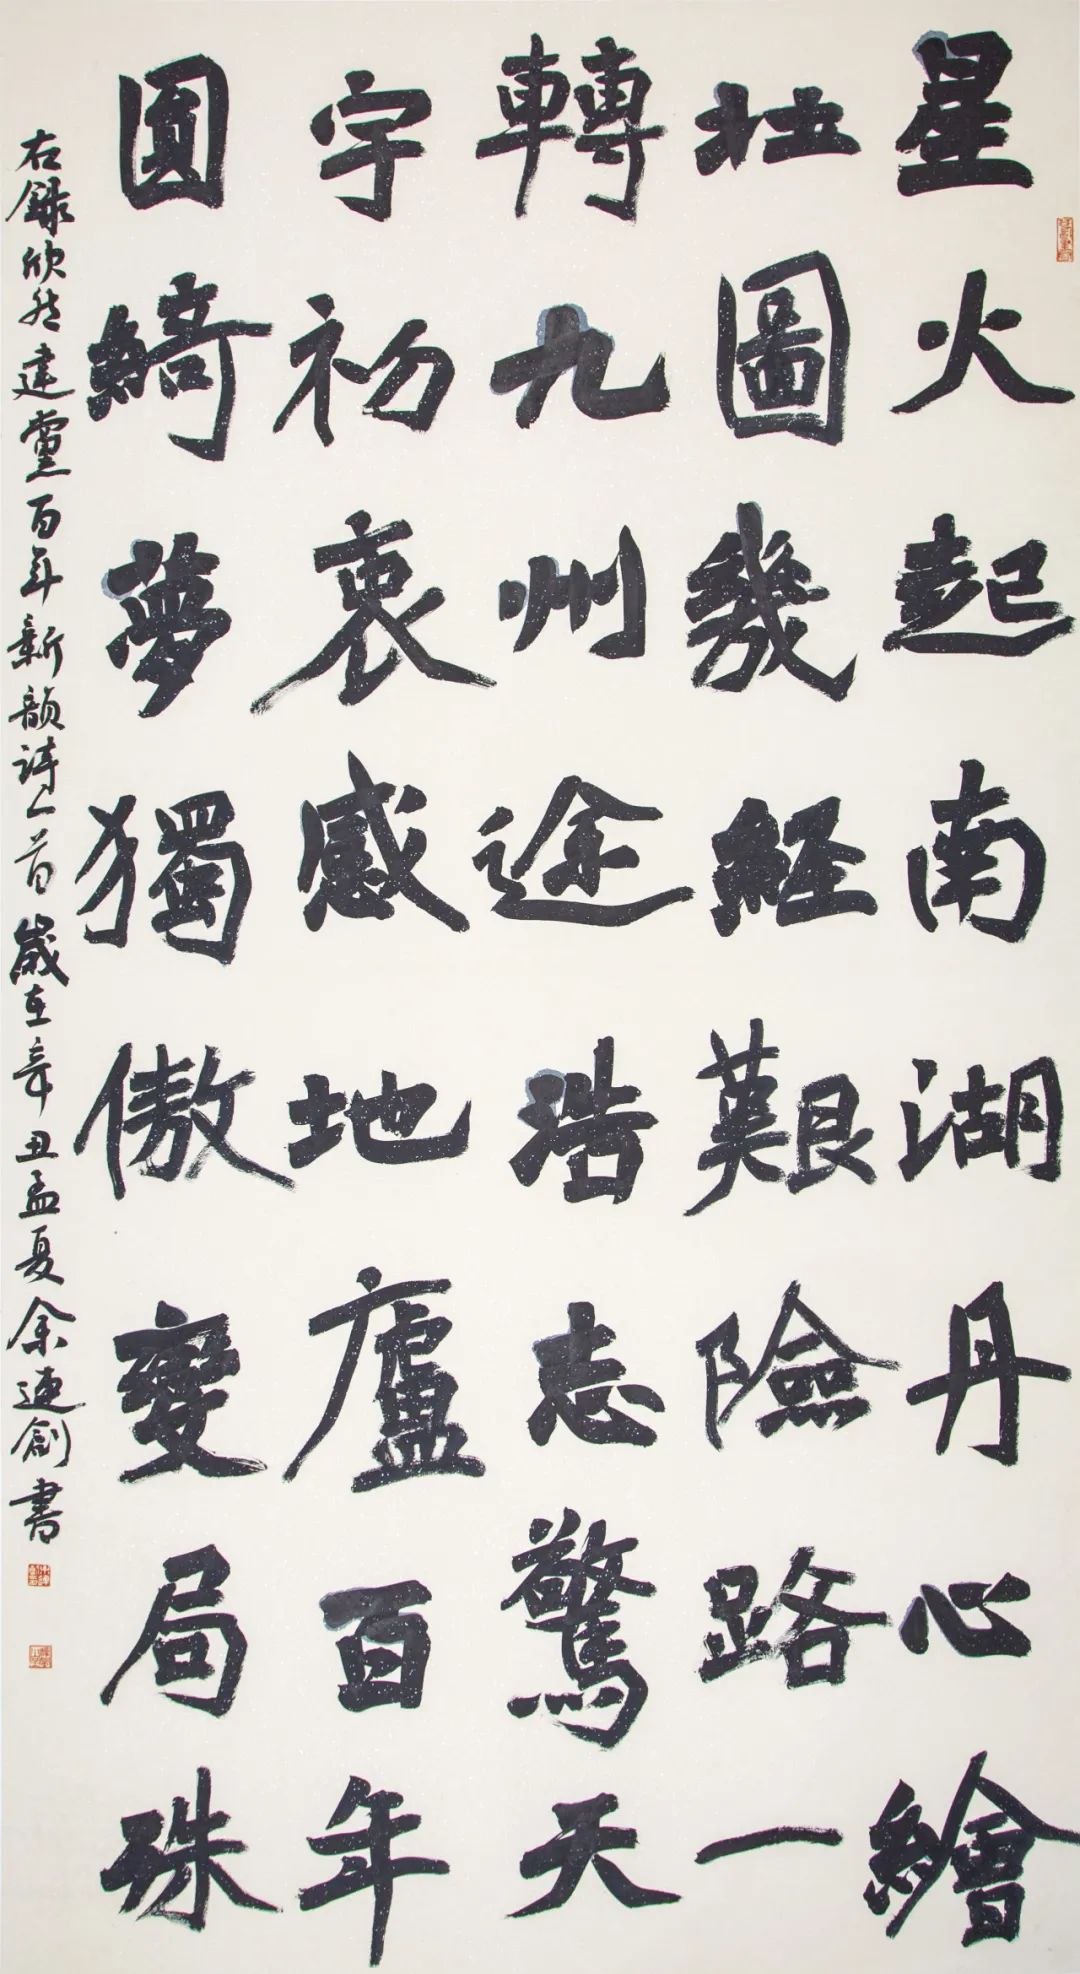 星火起南湖丹心繪
壯圖幾經艱險路一
轉九州途浩志驚天
宇初衷感地廬百年
圓綺夢獨傲變局殊
右錄欣然建黨百年新韻詩一首歲在辛丑孟夏余創書